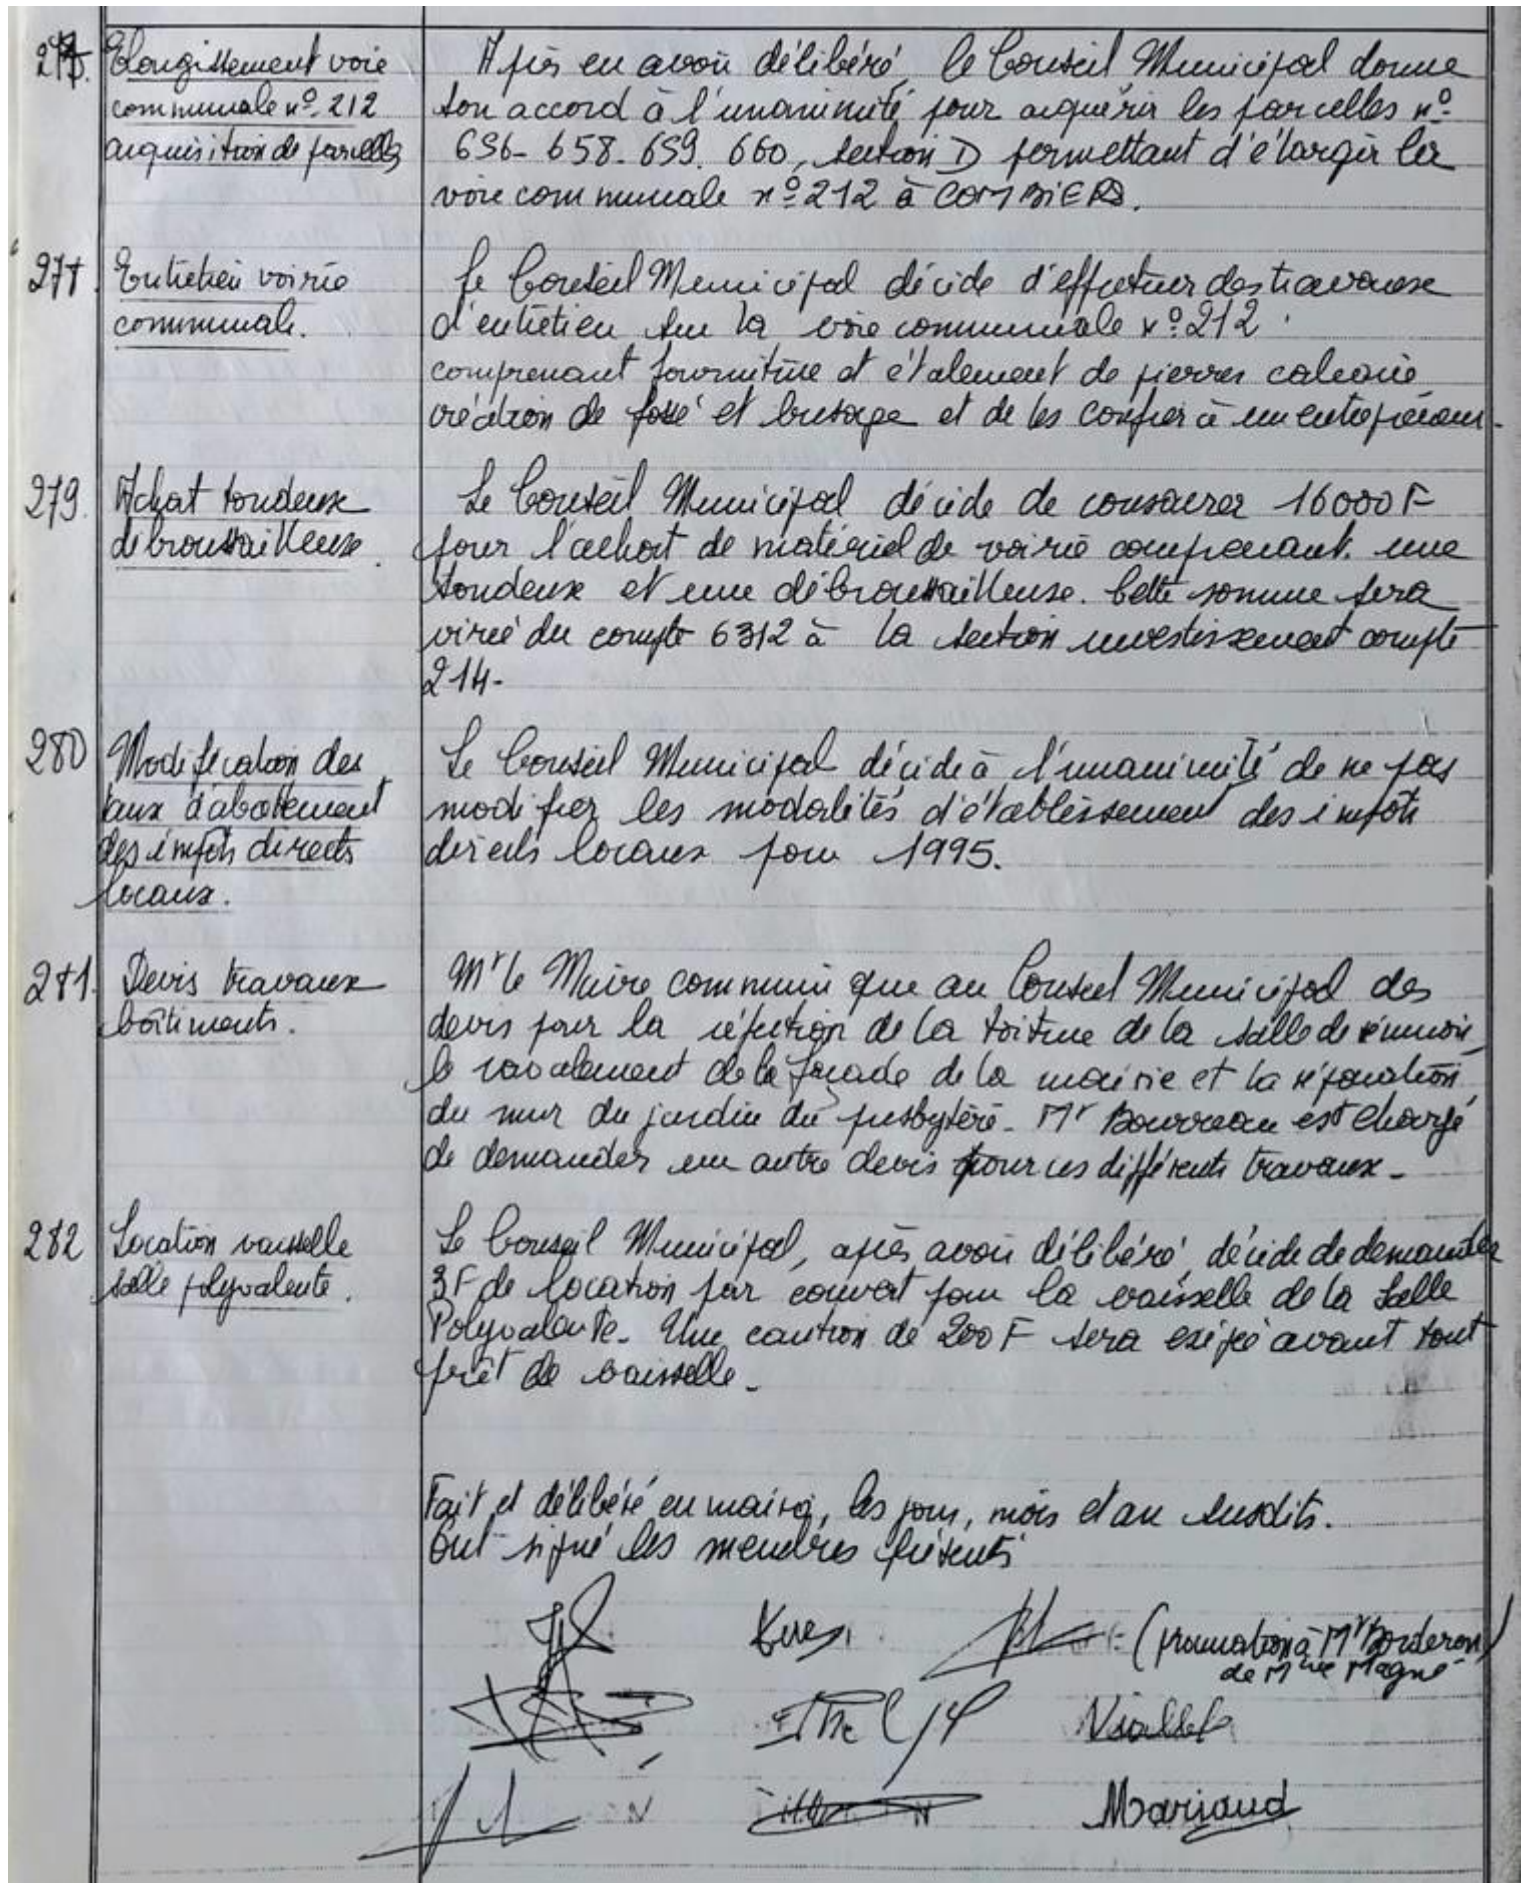 Elargissement voie
communale nº 212
acquisition de parcelles
Après en avoir délibéré, le Conseil Municipal donne
son accord à l'unanimité pour acquérir les parcelles nº
656- 658- 659. 660, section D permettant d'élargir la
voie communale nº 212 à COMBIERS.
Entretien voirie
communale.
Le Conseil Municipal décide d'effectuer des travaux
d'entretien sur la voie communale nº 212
comprenant fourniture et étalement de pierres calcaire
création de fossé et busage et de les confier à un entrepreneur.
279.
Achat tondeuse
débroussailleuse.
Le Conseil Municipal décide de consacrer 16000 F
pour l'achat de matériel de voirie comprenant une
tondeuse et une débroussailleuse. Cette somme sera
virée du compte 6312 à la section investissement compte
214-
280
Modification des
taux d'abattement
des impôts directs
locaux.
Le Conseil Municipal décide à l'unanimité de ne pas
modifier les modalités d'établissement des impôts
directs locaux pour 1995.
281.
Devis travaux
bâtiments.
Mr le Maire communique au Conseil Municipal des
devis pour la réfection de la toiture de la salle de réunion,
le ravalement de la façade de la mairie et la réparation
du mur du jardin du presbytère- Mr Bourreau est chargé
de demander un autre devis pour ces différents travaux-
282
Location vaisselle
salle polyvalente.
Le Conseil Municipal, après avoir délibéré, décide de demander
3F de location par couvert pour la vaisselle de la Salle
Polyvalente- Une caution de 200 F sera exigée avant tout
prêt de vaisselle-
Fait et délibéré en mairie, les jour, mois et an susdits.
Ont signé les membres présents
(procuration à Mr Borderon)
de Mme Magne
Mariaud